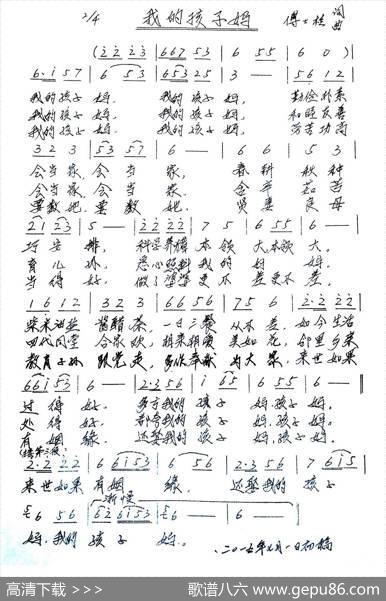 2/4 我的孩子妈 傅士桂 词曲
(2̇ 2̇ 2̇ 3̇ | 6 6 7 5 3 | 6 5 5 | 6 0 ) |
6 · i 5 7 | 6 5 3 | 6 5 3 2 5 | 3 — | 5 6 1 2 |
我的孩子 妈, 我的孩子 妈, 勤俭朴素
我的孩子 妈, 我的孩子 妈, 和睦友善
我的孩子 妈, 我的孩子 妈,
3 2 3 | 5 3 5 7 | 6 — | 6 6 | 5 3 |
会当家, 会 当 家, 春耕 秋种
会当家, 会 当 家, 含辛 茹苦
要教她, 要 教 她, 贤妻 良母
2 1 2 3 | 5 — | 2̇ 2̇ 2̇ 2̇ | 7 5 | 6 5 5 | 6 — |
巧安排, 科学养殖 本领 大,本领 大,
育儿 我的 妈
当得好, 更不 差,更不 差,
1 6 1 2 | 3 2 3 | 6 6 5 6 | 7 5 6 | 2̇ · 2̇ 2̇ 2̇ |
柴米油盐 酱醋茶, 一日三餐 从不差, 如今生活
四代同堂 合家欢, 相亲相爱 美如花, 邻里乡亲
教育子孙 跟党走, 多作奉献 为大家, 来世如果
6 6 i 5 3 | 6 — | 2 · 3 5 6 | i 6 5 | 6 5 6 | 6 — |
过得好, 多亏我的 孩子 妈,孩子 妈,
处得好, 都夸我的 孩子 妈,孩子 妈,
有姻缘, 还娶我的 孩子 妈,孩子 妈,
2̇ · 2̇ 2̇ 2̇ | 6 6 i 5 3 | 6 5 6 | 2 · 3 5 6 | 7 6 i 5 |
来世如果 有姻 缘, 还娶我的 孩子
渐慢
6 5 6 | 6 2 6 i 5 3 | 6 — | 6 — |
妈,我的 孩子 妈。
二〇一五年 月一日初稿
高清下载 >>> 歌谱八六 www.gepu86.com